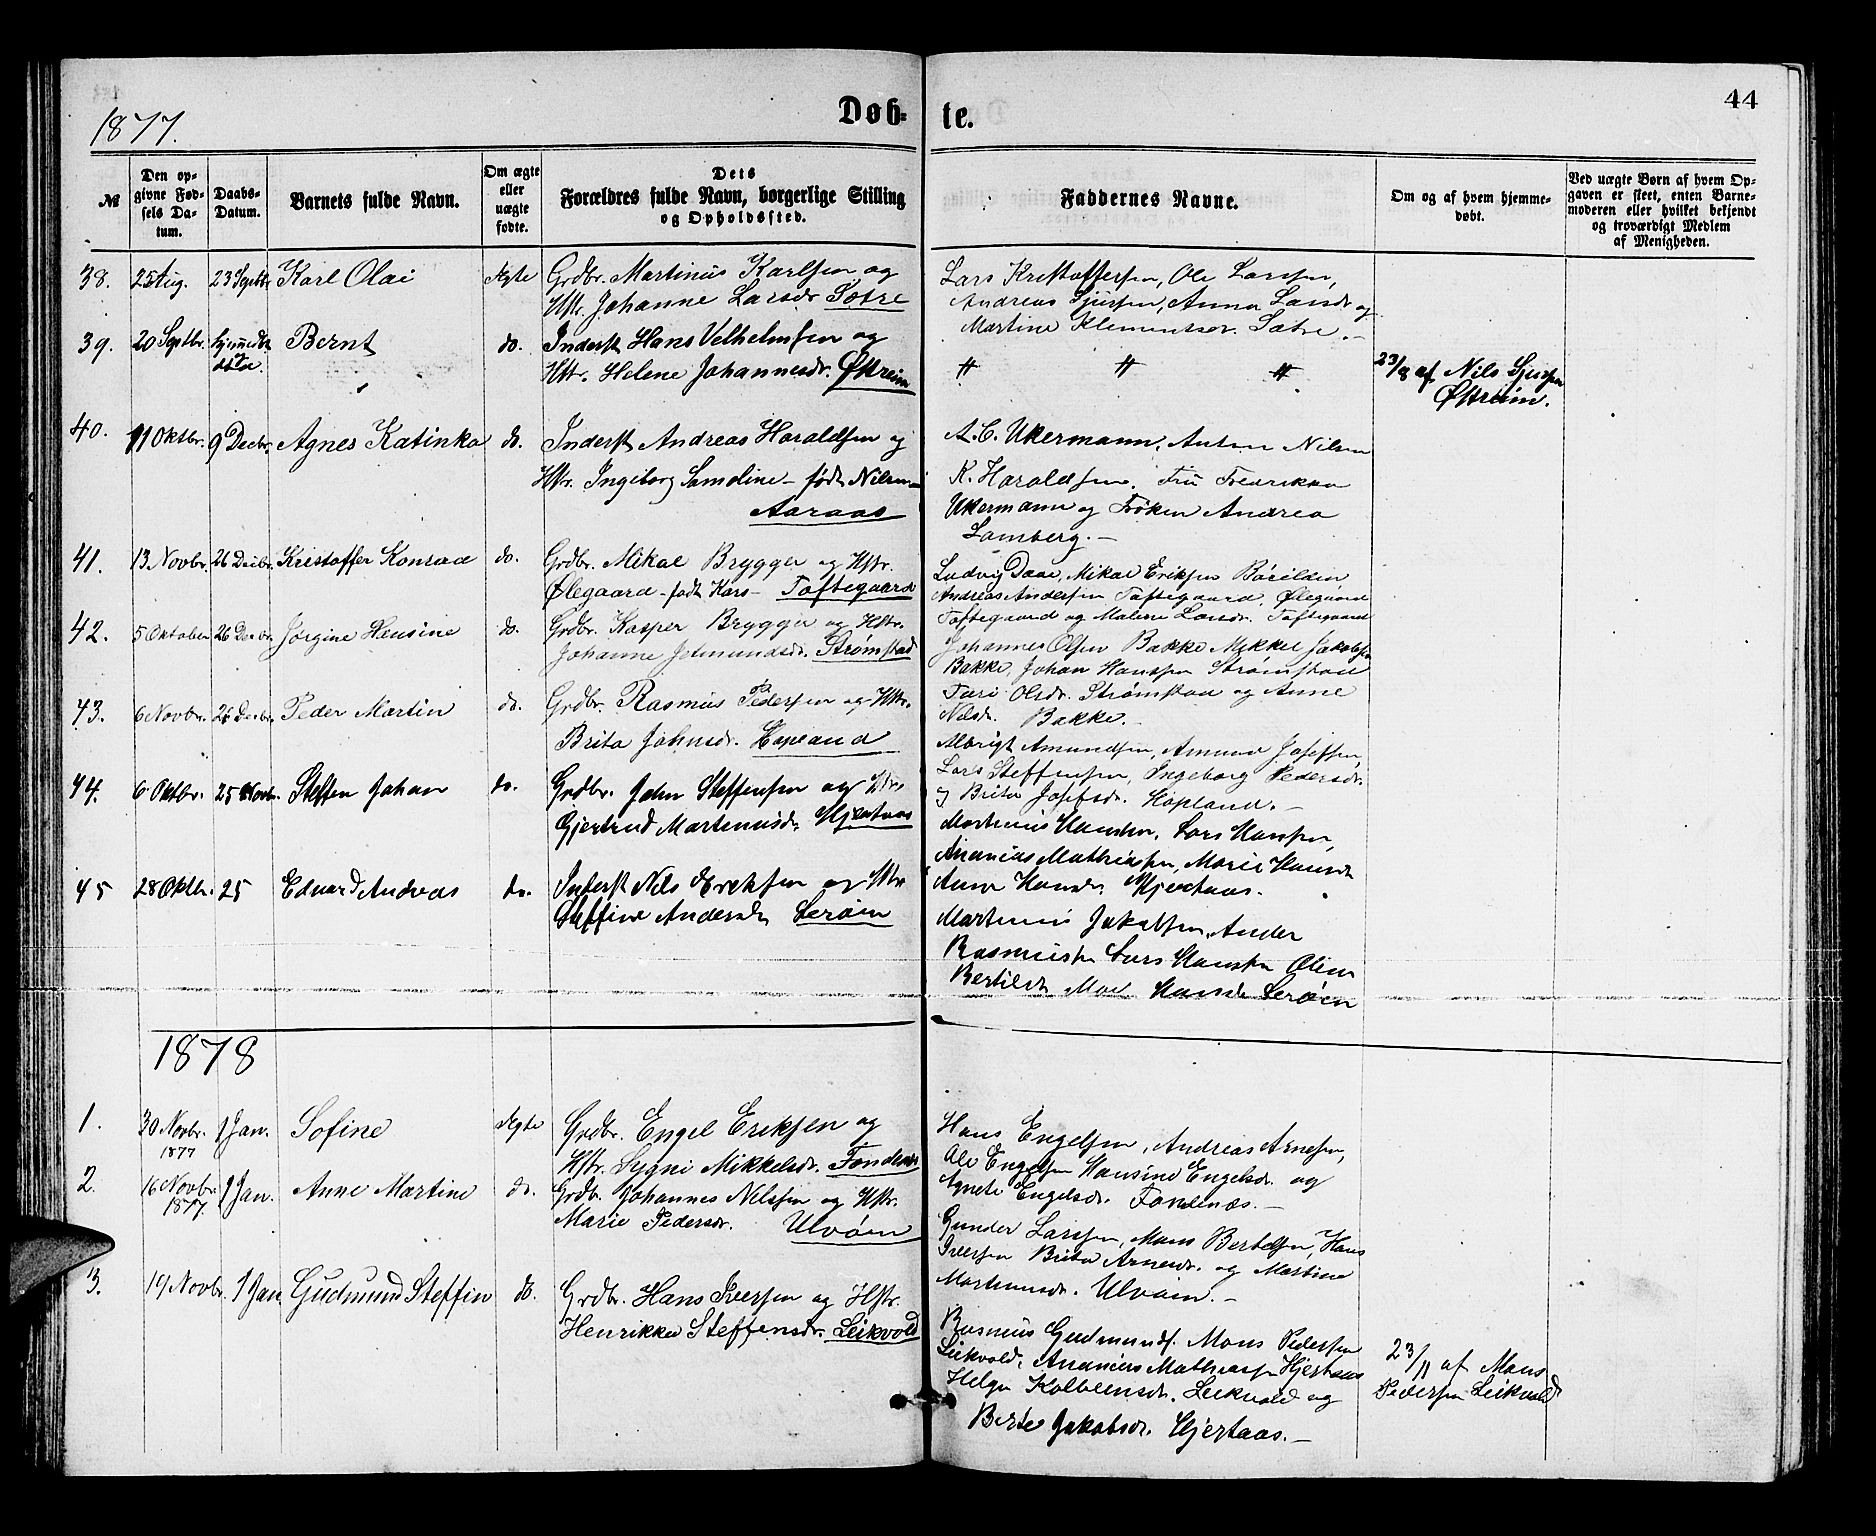 1877.
Døb-
te.
44
№
Den op-
givne Fød-
sels Da-
tum.
Daabs-
Datum.
Barnets fulde Navn.
Om ægte
eller
uægte
fødte.
Dets
Forældres fulde Navn, borgerlige Stilling
og Opholdssted.
Faddernes Navne.
Om og af hvem hjemme-
døbt.
Ved uægte Børn af hvem Op-
gaven er skeet, enten Barne-
moderen eller hvilket bekjendt
og troværdigt Medlem
af Menigheden.
38. 25 Aug. 23 Septbr Karl Olai Ægte Grdbr. Martinus Karlsen og
Hstr. Johanne Larsdr. Sætre
Lars Kristoffersen, Ole Larsen,
Andreas Sjursen, Anna Larsdr og
Martine Klementsdr. Sætre.-
39. 20 Septbr. hjemmedbt Bernt do. Inderst Hans Velhelmsen og
Hstr. Helene Johannesdr. Østreim
〃 〃 〃
23/8 af Nils Sjursen
Østreim.
40. 11 Oktbr. 9 Decbr. Agnes Katinka do. Inderst Andreas Haraldsen og
Hstr. Ingeborg Samoline - født Nilsen
Aaraas
A. C. Ukermann, Anton Nilsen
K. Haraldsen. Fru Fredrikka
Ukermann og Frøken Andrea
Lamberg.-
41. 13 Novbr. 26 Decbr. Kristoffer Konrad do. Grdbr. Mikal Brygger og Hstr.
Ølegaard - født Kars - Toftegaard
Ludvig Daae, Mikal Eriksen Børeildin
Andreas Andersen Toftegaard, Ølegaard
Toftegaard og Malene Larsdr. Toftegaard
42. 5 Oktober 26 Decbr. Jørgine Hensine do. Grdbr. Kasper Brygger og Hstr.
Johanne Jetmundsdr. Strømstad
Johannes Olsen Bakke Mikkel Jakobsen
Bakke, Johan Hanssen Strømstad
Turi Olsdr. Strømstad og Anne
Nilsdr. Bakke.-
43. 6 Novbr. 26 Decbr. Peder Martin do. Grdbr. Rasmus Pedersen og Hstr.
Brita Johnsdr. Hopland
Albrigt Amundsen, Amund Josefsen,
Lars Steffensen, Ingeborg Pedersdr.
og Brita Josefsdr. Hopland.-
44. 6 Oktbr. 25 Novb. Steffen Johan do. Grdbr. John Steffensen og Hstr.
Gjertrud Martinusdr. Hjertaas
Martinus Hansen, Lars Hansen,
Ananias Mathiassen, Marie Hansdr
Anne Hansdr Hjertaas.
45 28 Oktbr. 25 Eduard Andreas do. Inderst Nils Eriksen og Hstr
Steffine Andersdr Serøen
Martinus Jakobsen, Ander
Rasmussen Lars Hansen Oline
Bertilsdr Mar Hansdr Serøen
1878
1. 30 Novbr. 1 Jan. Sofine Ægte Grdbr. Engel Eriksen og
1877
Hstr. Sygni Mikkelsdr. Fondenæs
Hans Engelsen, Andreas Arnesen,
Ole Engelsen Hansine Engelsdr. og
Agnete Engelsdr. Fondenæs.-
2. 16 Novbr. 1 Jan. Anne Martine do. Grdbr. Johannes Nilssen og Hstr.
1877.
Marie Pedersdr. Ulvøen
Gunder Larssen, Mons Bertelsen, Hans
Iversen Brita Arnesdr. og Martine
Martinusdr. Ulvøen.-
3. 19 Novbr. 1 Jan Gudmund Steffin do. Grdbr. Hans Iversen og Hstr.
Henrikke Steffensdr. Leikvold
Rasmus Gudmunds. Mons Pedersen
Leikvold, Ananias Mathiassen Hjertaas
Helga Kolbeinsdr. Leikvold og
Berte Jakobsdr. Hjertaas.-
23/11 af Mons
Pedersen Leikvold